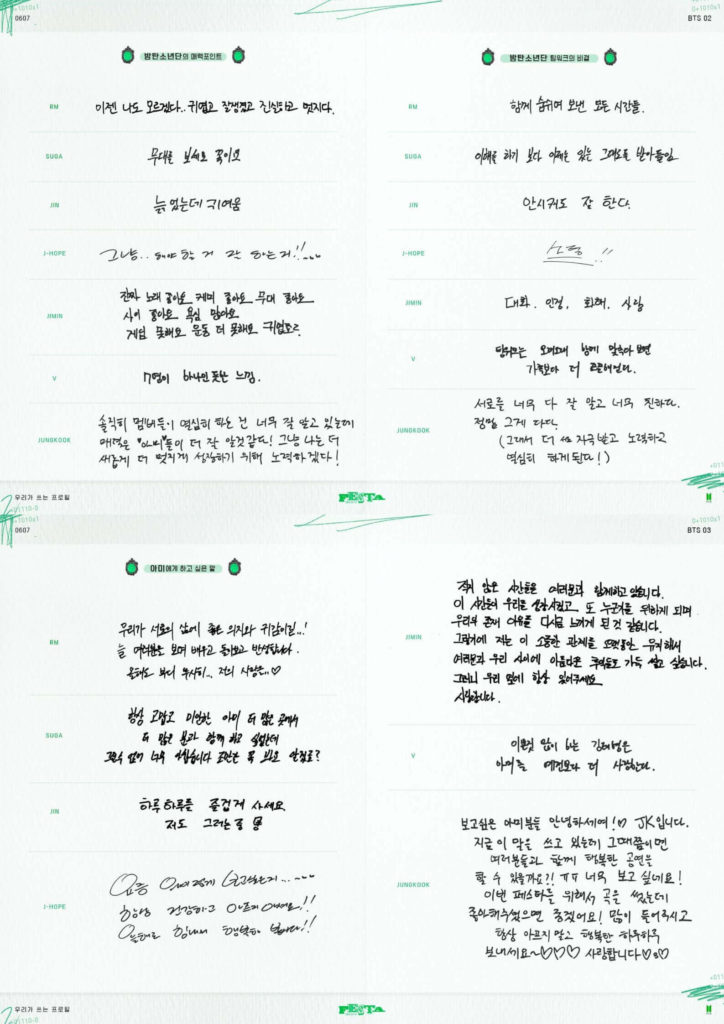 0+1010x1
0607
BTS 02
방탄소년단의 매력포인트
RM
이젠 나도 모르겠다.. 귀엽고 잘생겼고 진실되고 멋지다.
SUGA
무대를 보세요 꼭이요
JIN
늙었는데 귀여움
J-HOPE
그냥.. 해야 할 거 잘 하는거!!
JIMIN
진짜 노래 좋아요 케미 좋아요 무대 좋아요
사이 좋아요 욕심 많아요
게임 못해요 운동 더 못해요 귀엽죠
V
7명이 하나인 듯한 느낌.
JUNGKOOK
솔직히 멤버들이 열심히 하는 건 너무 잘 알고 있는데
매력은 "아미"들이 더 잘 알것 같다! 그냥 나는 더
새롭게 더 멋지게 성장하기 위해 노력하겠다!
방탄소년단 팀워크의 비결
RM
함께 숨쉬며 보낸 모든 시간들.
SUGA
이해를 하기 보다 이제는 있는 그대로를 받아들임
JIN
안시켜도 잘 한다.
J-HOPE
소통!!
JIMIN
대화, 인정, 화해, 사랑
V
팀워크는 오래오래 함께 맞추다 보면
가족보다 더
JUNGKOOK
서로를 너무 다 잘 알고 너무 친하다.
정말 그게 다다.
(그래서 더 자극받고 노력하고
열심히 하게된다!)
우리가 쓰는 프로필
FESTA
0607
BTS 03
아미에게 하고 싶은 말
RM
우리가 서로의 삶에 좋은 의지와 귀감이길..!
늘 여러분을 보며 배우고 돌아보고 반성합니다.
올해도 부디 무사히... 전디 사랑은..♡
SUGA
항상 고맙고 미안한 아미 더 많은 곳에서
더 많은 분과 함께 하고 싶었는데
그럴수 없어 너무 아쉽습니다 조만간 꼭 봐요 알겠죠?
JIN
하루하루를 즐겁게 사세요
저도 그러는 중
J-HOPE
요즘 어떠헣게 보고싶은지......
항상 건강하고 아프지 마세요!!
올해도 힘내서 행복해 봅시다!!
JIMIN
적지 않은 시간들을 여러분과 함께하고 있습니다.
이 시간들이 우리를 성장시켰고 또 누군가를 위하게 되며
우리의 존재 이유를 다시금 느끼게 된 것 같습니다.
그렇기에 저는 이 소중한 관계를 오랫동안 유지해서
여러분과 우리 사이에 아름다운 추억들로 가득 쌓고 싶습니다.
그러니 우리 옆에 항상 있어주세요
사랑합니다.
V
이분들 없이 못사는 김태형은
아미를 예전보다 더 사랑한다.
JUNGKOOK
보고싶은 아미분들 안녕하세여!♡ JK입니다.
지금 이 말을 쓰고 있는데 그때쯤이면
여러분들과 함께 행복한 공연을
할 수 있을까요?! ㅠㅠ 너무 보고 싶네요!
이번 페스타를 위해서 곡을 썼는데
좋아해주셨으면 좋겠어요! 많이 들어주시고
항상 아프지 말고 행복한 하루하루
보내세요~♡♡♡ 사랑합니다♡♡♡
우리가 쓰는 프로필
FESTA